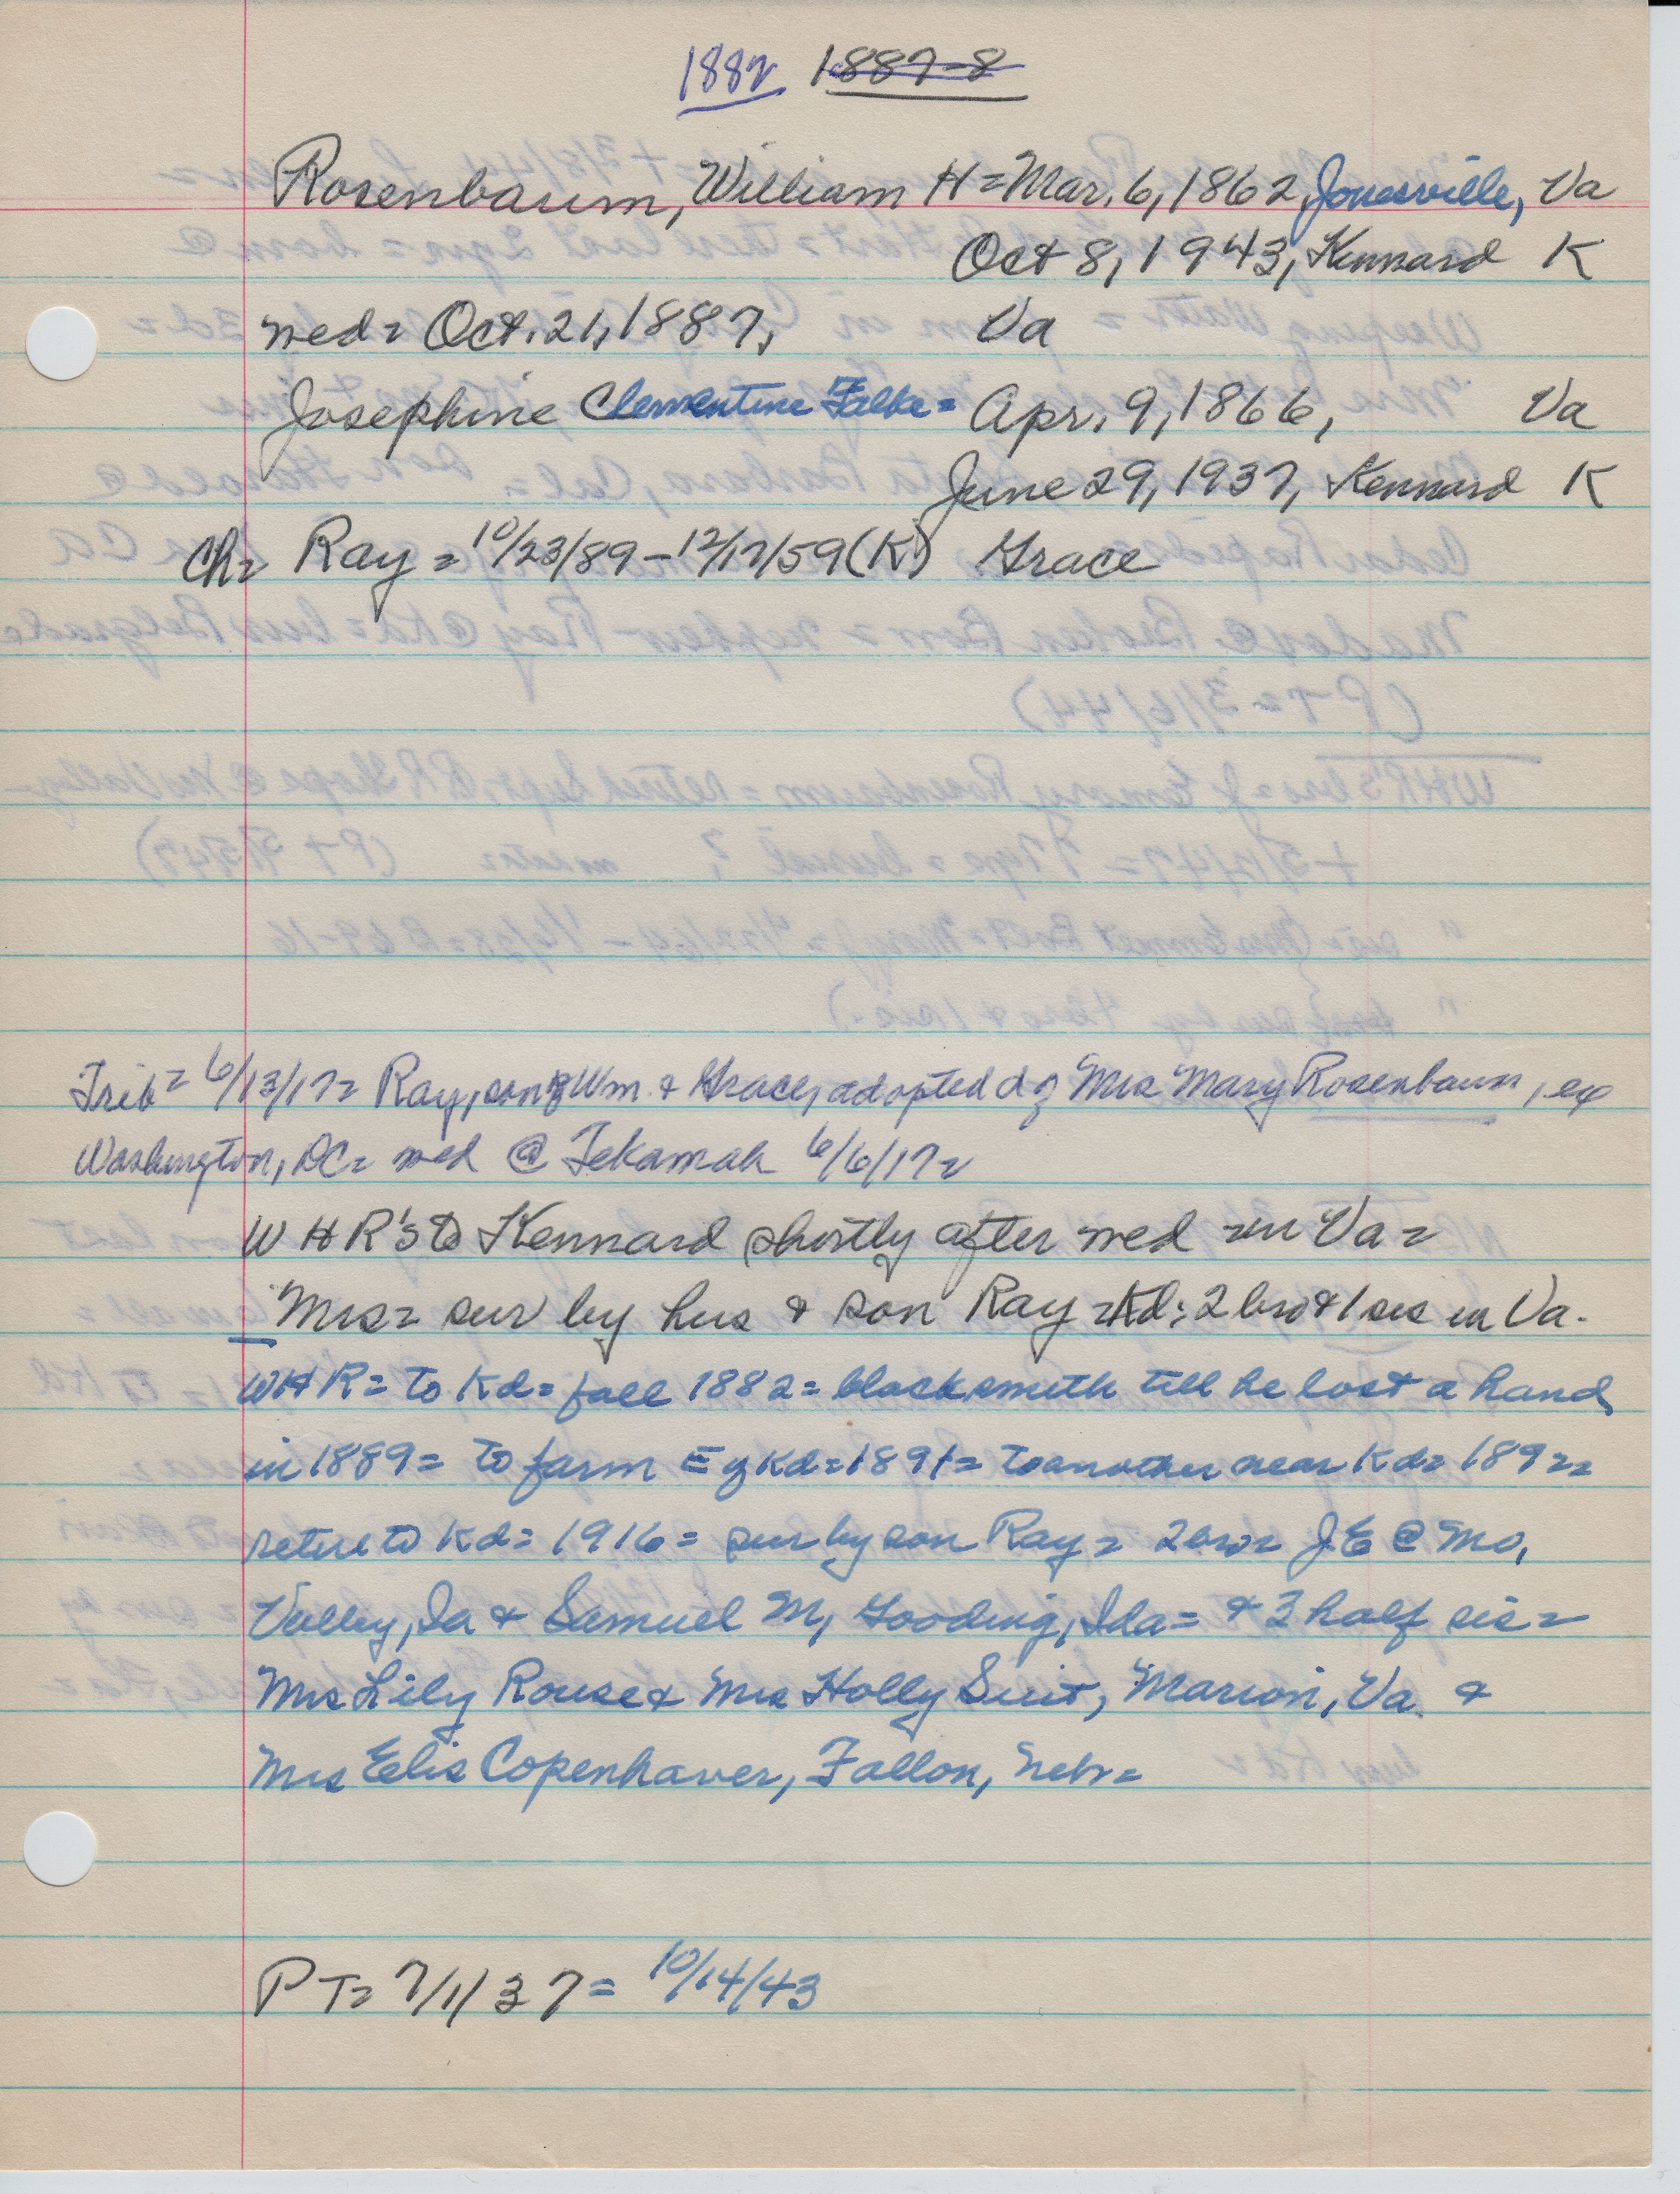 1882 1887-8
Rosenbaum, William H = Mar. 6, 1862, Jonesville, Va
Oct 8, 1943, Kennard K
wed = Oct. 21, 1887, Va
Josephine Clementine Falke = Apr. 9, 1866, Va
June 29, 1937, Kennard K
Ch = Ray = 10/23/89 - 12/17/59 (K) Grace
Trib = 6/13/17 = Ray, son of Wm. & Grace, adopted d of Mrs Mary Rosenbaum, ex
Washington, DC = wed @ Tekamah 6/6/17 =
W H R's to Kennard shortly after wed in Va =
Mrs = sur by hus & son Ray = Kd; 2 bro & 1 sis in Va.
WHR = to Kd = fall 1882 = blacksmith till he lost a hand
in 1889 = to farm E of Kd = 1891 = to another near Kd = 1892 =
retire to Kd = 1916 = sur by son Ray = 2 bro = J.E @ Mo.
Valley, Ia & Samuel M, Gooding, Ida = & 3 half sis =
Mrs Lily Rouse & Mrs Holly Suit, Marion, Va. &
Mrs Elis Copenhaver, Fallon, Nebr =
PT = 7/1/37 = 10/14/43